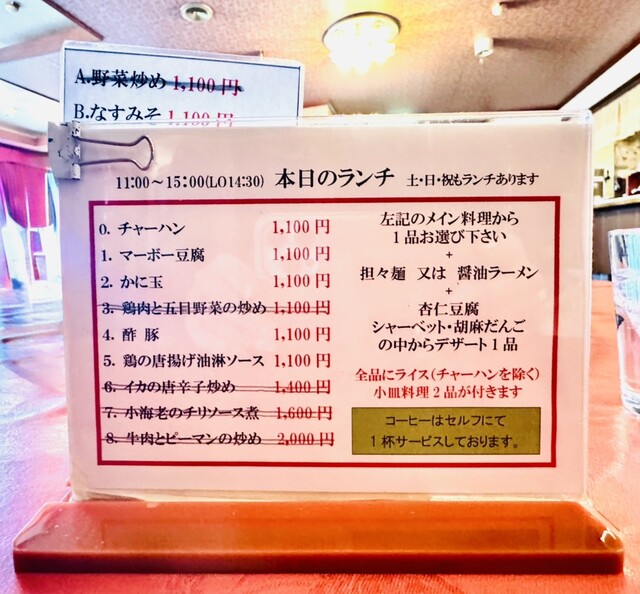 A.野菜炒め 1,100 円
B.なすみそ 1,100 円
11:00～15:00(LO14:30) 本日のランチ 土・日・祝もランチあります
0. チャーハン 1,100 円
1. マーボー豆腐 1,100 円
2. かに玉 1,100 円
3. 鶏肉と五目野菜の炒め 1,100 円
4. 酢豚 1,100 円
5. 鶏の唐揚げ油淋ソース 1,100 円
6. イカの唐辛子炒め 1,400 円
7. 小海老のチリソース煮 1,600 円
8. 牛肉とピーマンの炒め 2,000 円
左記のメイン料理から
1品お選び下さい
+
担々麺 又は 醤油ラーメン
+
杏仁豆腐
シャーベット・胡麻だんご
の中からデザート1品
全品にライス(チャーハンを除く)
小皿料理2品が付きます
コーヒーはセルフにて
1杯サービスしております。